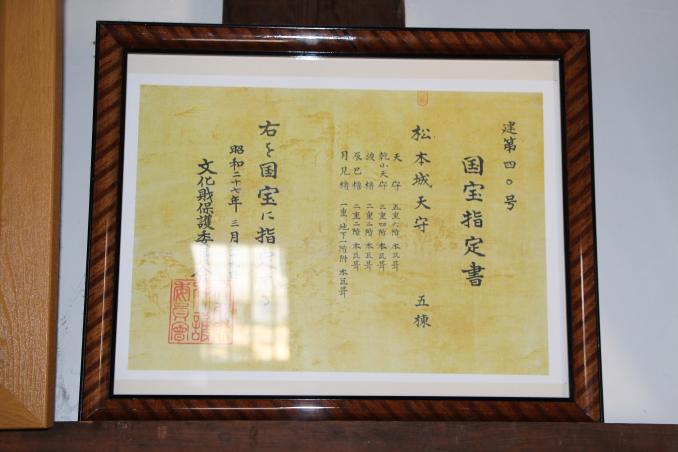 建第四〇号
国宝指定書
松本城天守 五棟
天守 五重六階 本瓦葺
乾小天守 三重四階 本瓦葺
渡櫓 二重二階 本瓦葺
辰巳櫓 二重二階 本瓦葺
月見櫓 一重 地下一階附 本瓦葺
右を国宝に指定
昭和二十七年 三月
文化財保護委員会